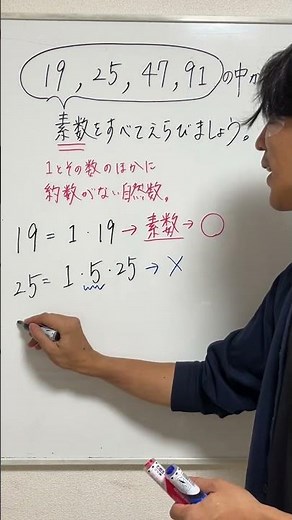 19, 25, 47, 91 の中か
素数をすべてえらびましょう。
1とその数のほかに
約数がない自然数。
19 = 1・19 → 素数 → ○
25 = 1・5・25 → ×